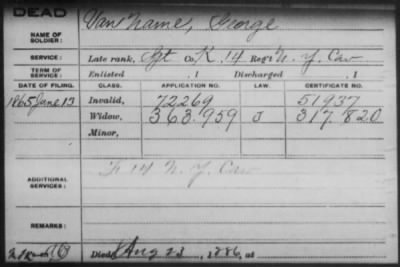 DEAD
Van Name, George
NAME OF SOLDIER:
SERVICE: Late rank, Sgt Co. K, 14 Reg't N. Y. Cav
TERM OF SERVICE: Enlisted , 1 Discharged , 1
DATE OF FILING. CLASS. APPLICATION NO. LAW. CERTIFICATE NO.
1865 June 13 Invalid, 72269 51937
Widow, 363.959 J 317.820
Minor,
F 14 N. Y. Cav
ADDITIONAL SERVICES:
REMARKS:
Died Aug 23, 1886, at